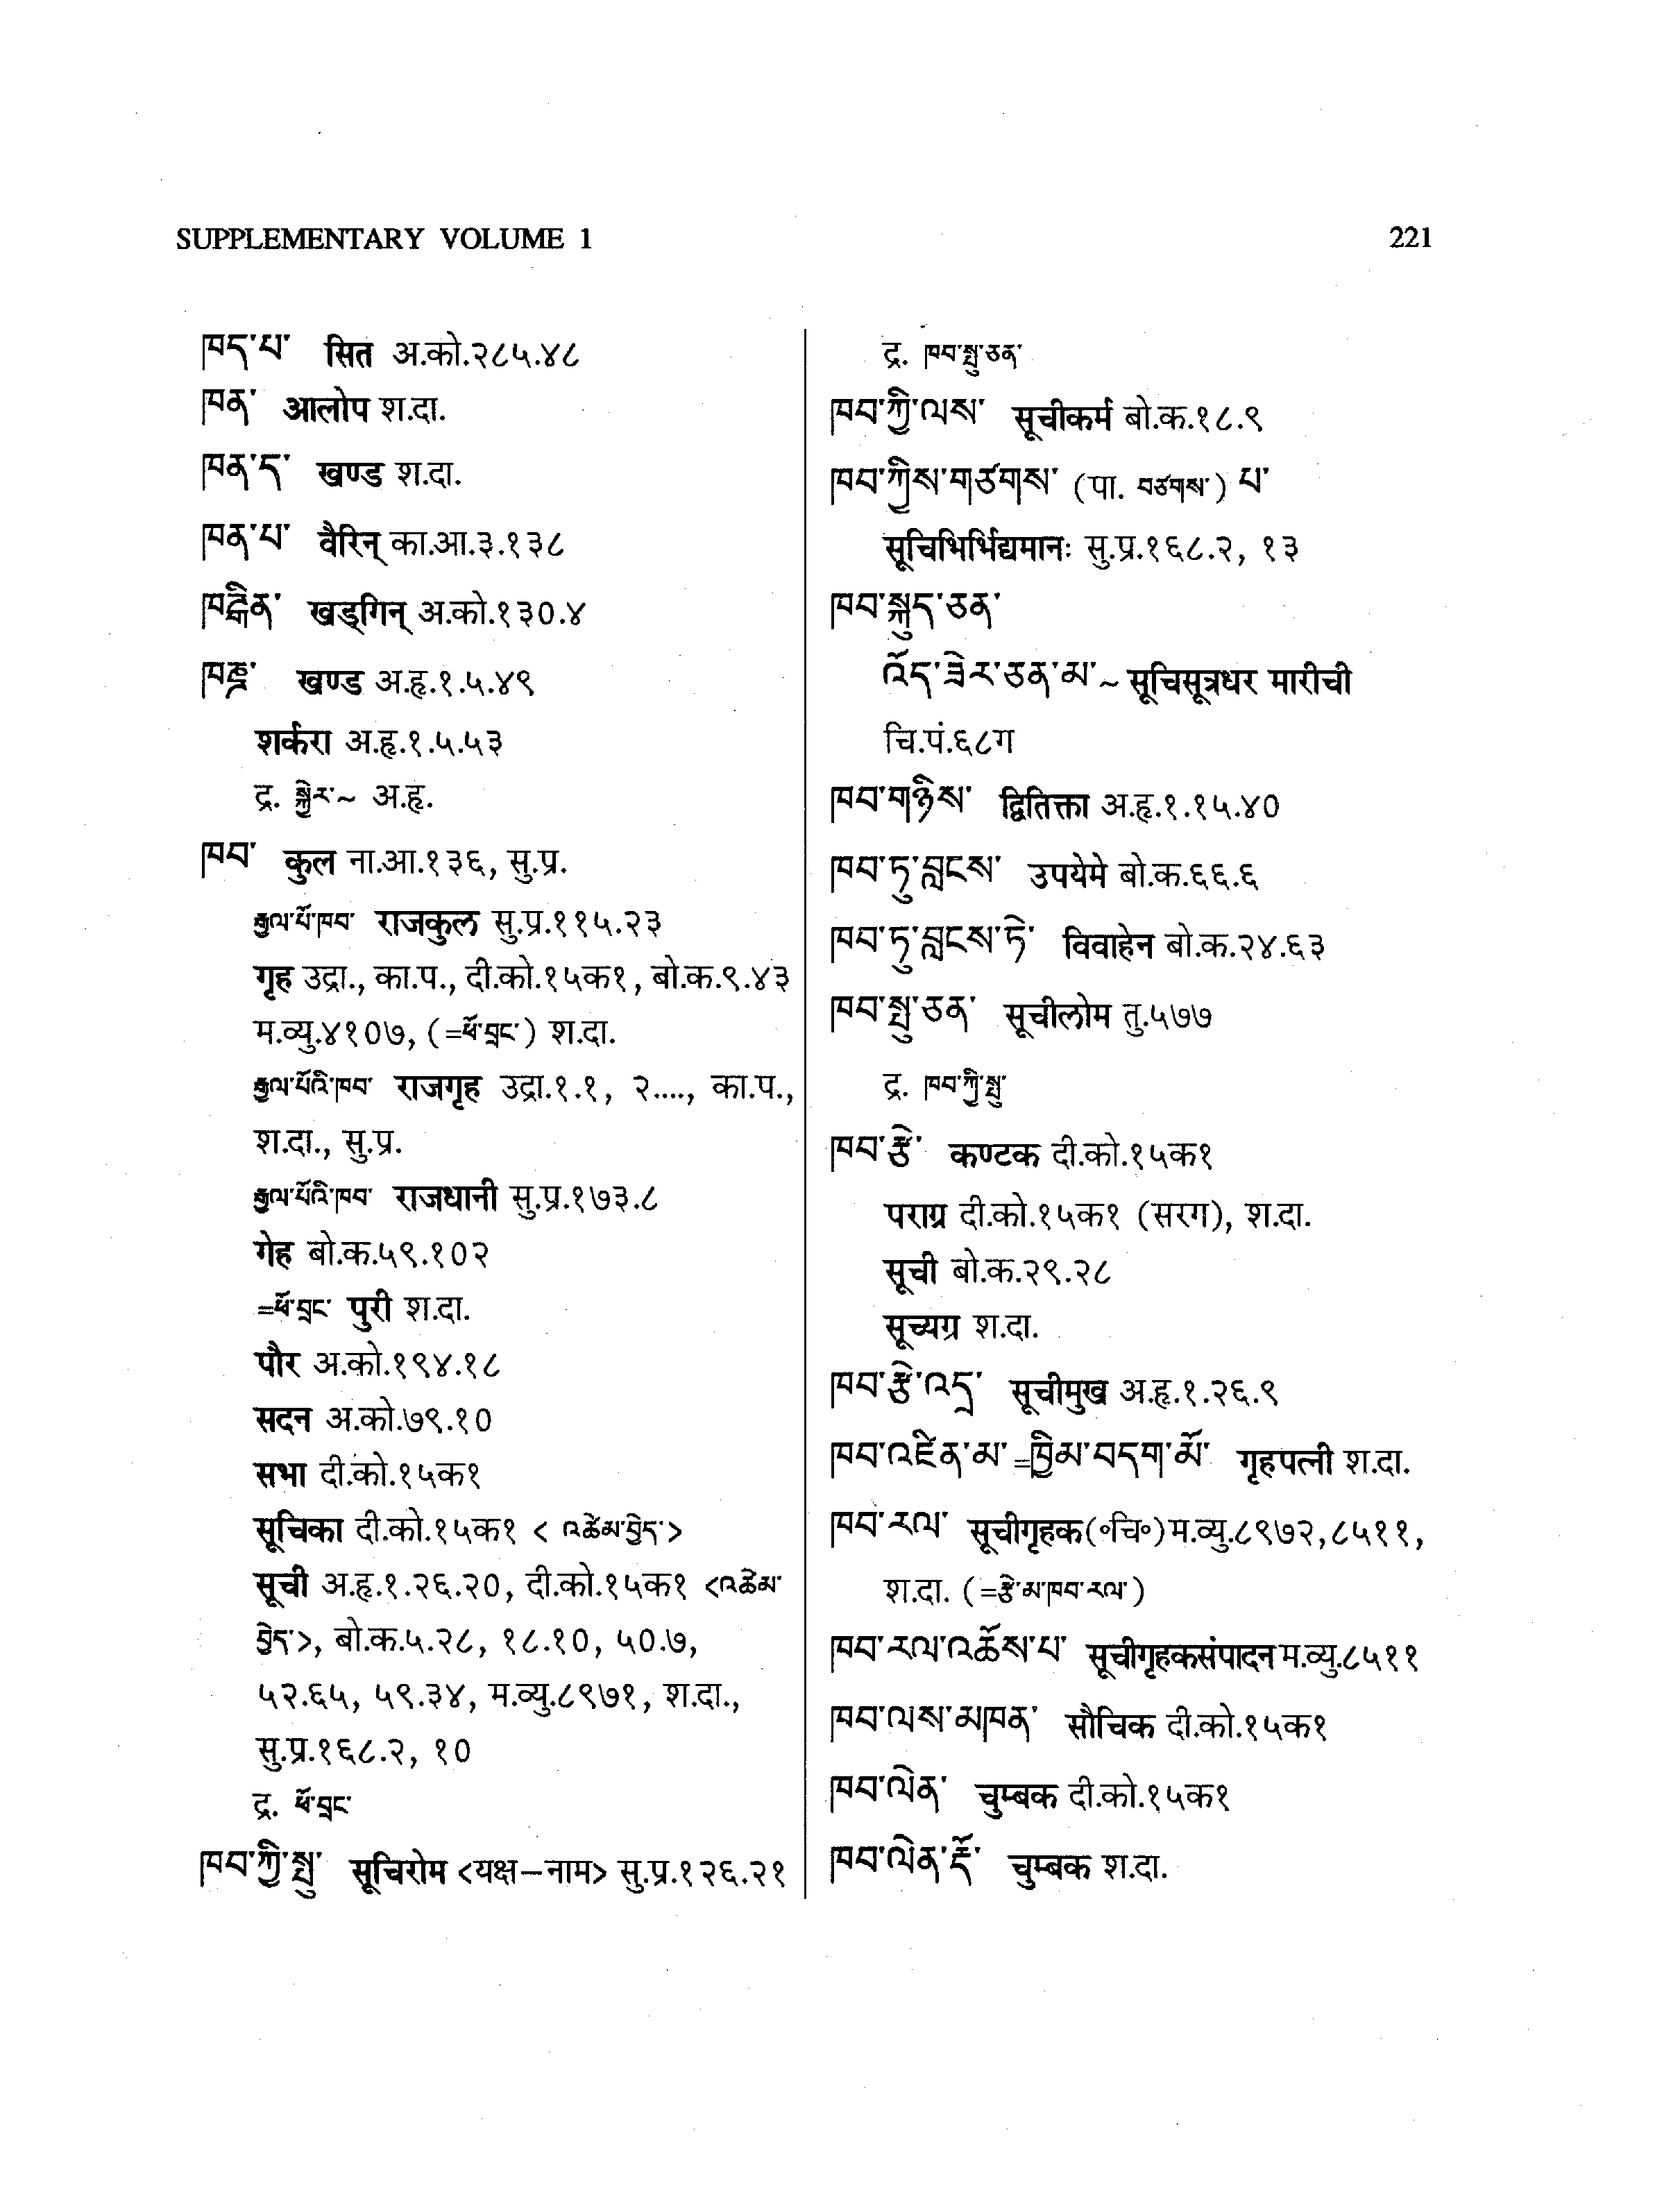 SUPPLEMENTARY VOLUME 1 221
ཁད་པ་ सित अ.को.२८५.४८
ཁན་ आलोप श.दा.
ཁན་ད་ खण्ड श.दा.
ཁན་པ་ वैरिन् का.आ.३.१३८
ཁཌྒིན་ खड्गिन् अ.को.१३०.४
ཁཎྜ་ खण्ड अ.हृ.१.५.४९
शर्करा अ.हृ.१.५.५३
द्र. སྐྱེར་~ अ.हृ.
ཁབ་ कुल ना.आ.१३६, सु.प्र.
རྒྱལ་པོ་ཁབ་ राजकुल सु.प्र.११५.२३
गृह उद्रा., का.प., दी.को.१५क१, बो.क.९.४३
म.व्यु.४१०७, (=ཕོ་བྲང་) श.दा.
རྒྱལ་པོའི་ཁབ་ राजगृह उद्रा.१.१, २...., का.प.,
श.दा., सु.प्र.
རྒྱལ་པོའི་ཁབ་ राजधानी सु.प्र.१७३.८
गेह बो.क.५९.१०२
=ཕོ་བྲང་ पुरी श.दा.
पौर अ.को.१९४.१८
सदन अ.को.७९.१०
सभा दी.को.१५क१
सूचिका दी.को.१५क१ < འཚེམ་བྱེད་>
सूची अ.हृ.१.२६.२०, दी.को.१५क१ <འཚེམ་
བྱེད་>, बो.क.५.२८, १८.१०, ५०.७,
५२.६५, ५९.३४, म.व्यु.८९७१, श.दा.,
सु.प्र.१६८.२, १०
द्र. ཕོ་བྲང་
ཁབ་ཀྱི་སྤུ་ सूचिरोम <यक्ष–नाम> सु.प्र.१२६.२१
द्र. ཁབ་སྤུ་ཅན་
ཁབ་ཀྱི་ལས་ सूचीकर्म बो.क.१८.९
ཁབ་ཀྱིས་གཙགས་ (पा. བཙགས་) པ་
सूचिभिर्भिद्यमानः सु.प्र.१६८.२, १३
ཁབ་སྐུད་ཅན་
འོད་ཟེར་ཅན་མ་~ सूचिसूत्रधर मारीची
चि.पं.६८ग
ཁབ་གཉིས་ द्वितिक्ता अ.हृ.१.१५.४०
ཁབ་ཏུ་བླངས་ उपयेमे बो.क.६६.६
ཁབ་ཏུ་བླངས་ཏེ་ विवाहेन बो.क.२४.६३
ཁབ་སྤུ་ཅན་ सूचीलोम तु.५७७
द्र. ཁབ་ཀྱི་སྤུ་
ཁབ་རྩེ་ कण्टक दी.को.१५क१
पराग्र दी.को.१५क१ (सरग), श.दा.
सूची बो.क.२९.२८
सूच्यग्र श.दा.
ཁབ་རྩེ་འདྲ་ सूचीमुख अ.हृ.१.२६.९
ཁབ་འཛིན་མ་=ཁྱིམ་བདག་མོ་ गृहपत्नी श.दा.
ཁབ་རལ་ सूचीगृहक(॰चि॰)म.व्यु.८९७२,८५११,
श.दा. (=རྩེ་མ་ཁབ་རལ་)
ཁབ་རལ་འཆོས་པ་ सूचीगृहकसंपादन म.व्यु.८५११
ཁབ་ལས་མཁན་ सौचिक दी.को.१५क१
ཁབ་ལེན་ चुम्बक दी.को.१५क१
ཁབ་ལེན་རྡོ་ चुम्बक श.दा.